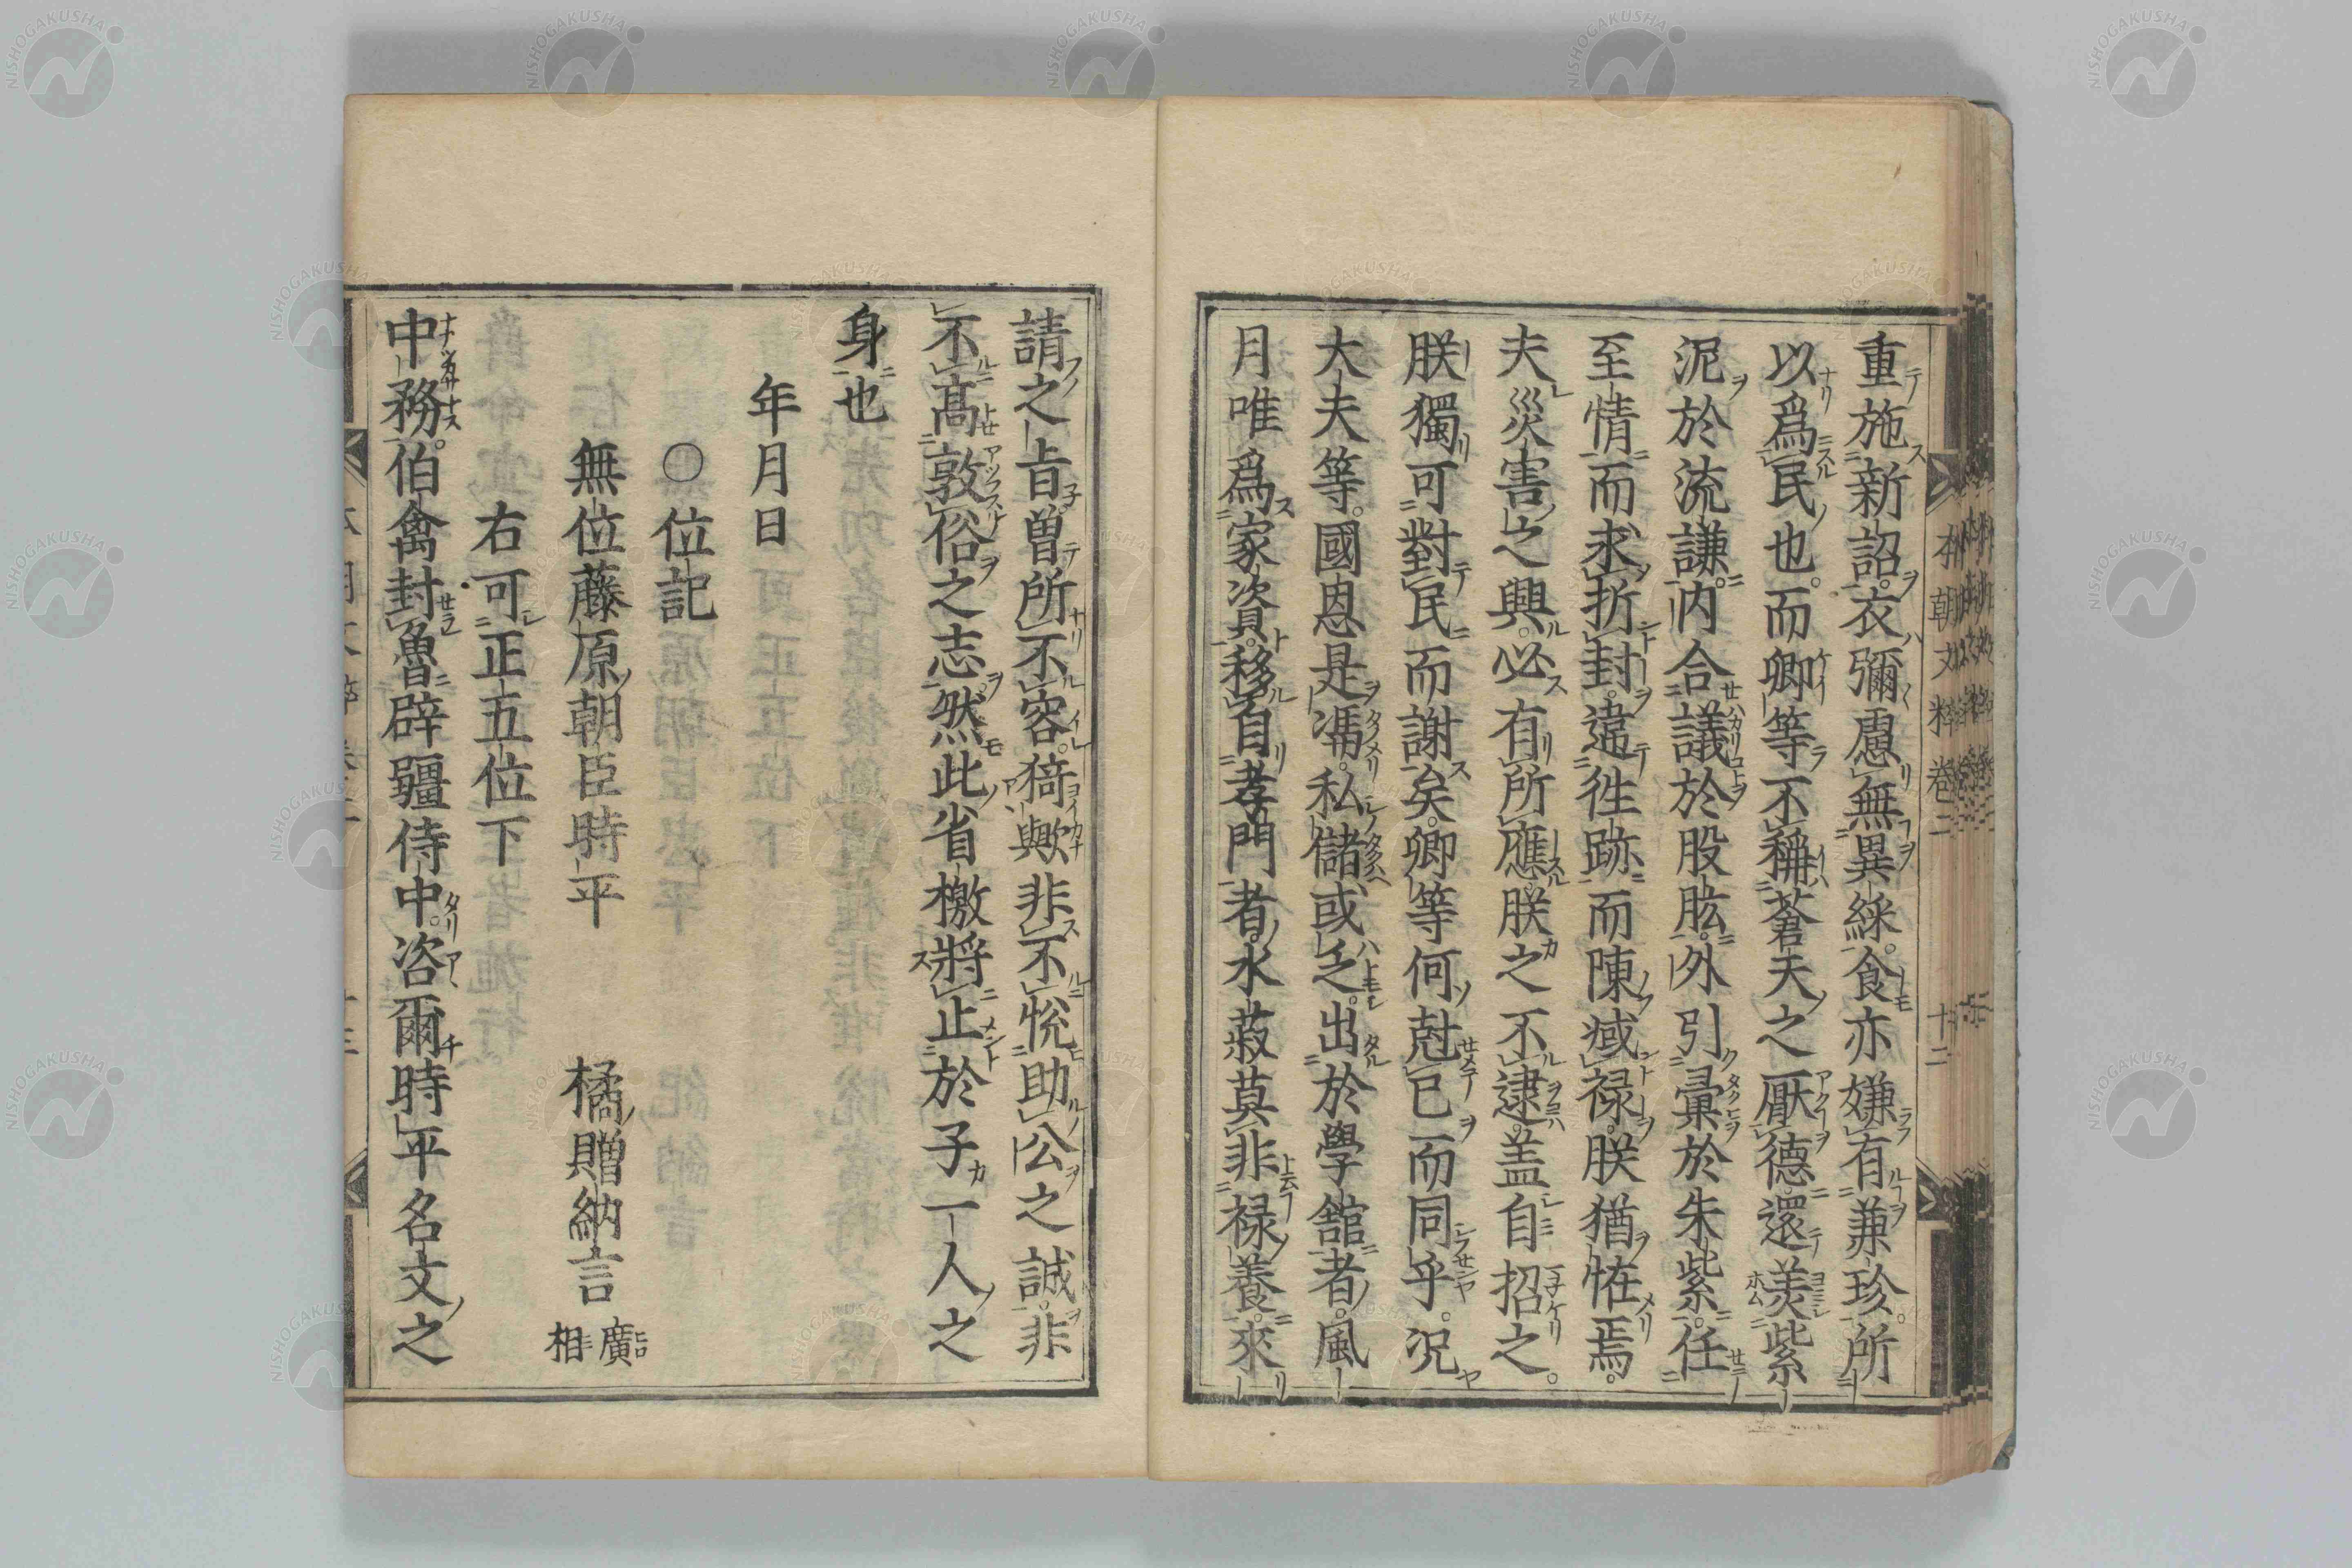 重施新詔。衣彌慮無異綵。食亦嫌有兼珍。所
以爲民也。而卿等不稱蒼天之厭德還羨紫
泥於流謙。内合議於股肱。外引彙於朱紫。任
至情而求折封。違徃跡而陳減禄。朕猶恠焉。
夫災害之興。必有所應。朕之不逮。盖自招之。
朕獨可對民而謝矣。卿等何尅已而同乎。况
大夫等。國恩是馮。私儲或乏。出於學舘者。風
月唯爲家資。移自孝門者。水菽莫非禄養。來
請之旨曽所不容。猗歟非不悦助公之誠。非
不髙敦俗之志。然此省檄將止於予一人之
身也
年月日
○位記
無位藤原朝臣時平 橘贈納言廣相
右可正五位下
中務。伯禽封魯辟疆侍中。咨爾時平名文之
本朝文粹卷二 十二